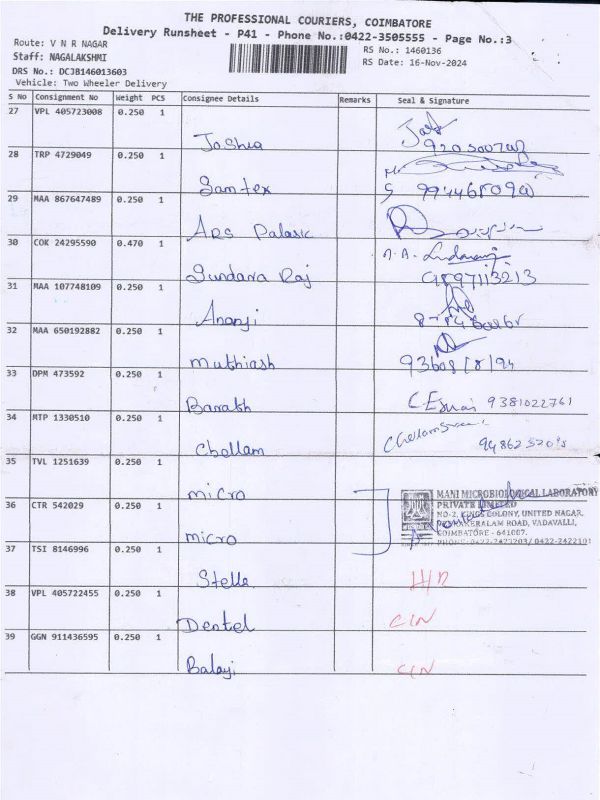 THE PROFESSIONAL COURIERS, COIMBATORE
Delivery Runsheet - P41 - Phone No.:0422-3505555 - Page No.:3
Route: V N R NAGAR
RS No.: 1460136
Staff: NAGALAKSHMI
RS Date: 16-Nov-2024
DRS No.: DCJB146013603
Vehicle: Two Wheeler Delivery
S No Consignment No Weight PCS Consignee Details Remarks Seal & Signature
27 VPL 405723008 0.250 1 Joshia
28 TRP 4729049 0.250 1 Samtex
29 MAA 867647489 0.250 1 ARS
30 COK 24295590 0.470 1 Sundara Raj 9897113213
31 MAA 107748109 0.250 1 Ananji
32 MAA 650192882 0.250 1 Muthiash
33 DPM 473592 0.250 1 Barath 9381022761
34 MTP 1330510 0.250 1 Chellam
35 TVL 1251639 0.250 1 micro
MANI MICROBIOLOGICAL LABORATORY
PRIVATE LIMITED
NO-2, KINGS COLONY, UNITED NAGAR,
ROAD, VADAVALLI,
COIMBATORE - 641007.
36 CTR 542029 0.250 1 micro
37 TSI 8146996 0.250 1 Stella
38 VPL 405722455 0.250 1 Dentel
39 GGN 911436595 0.250 1 Balaji